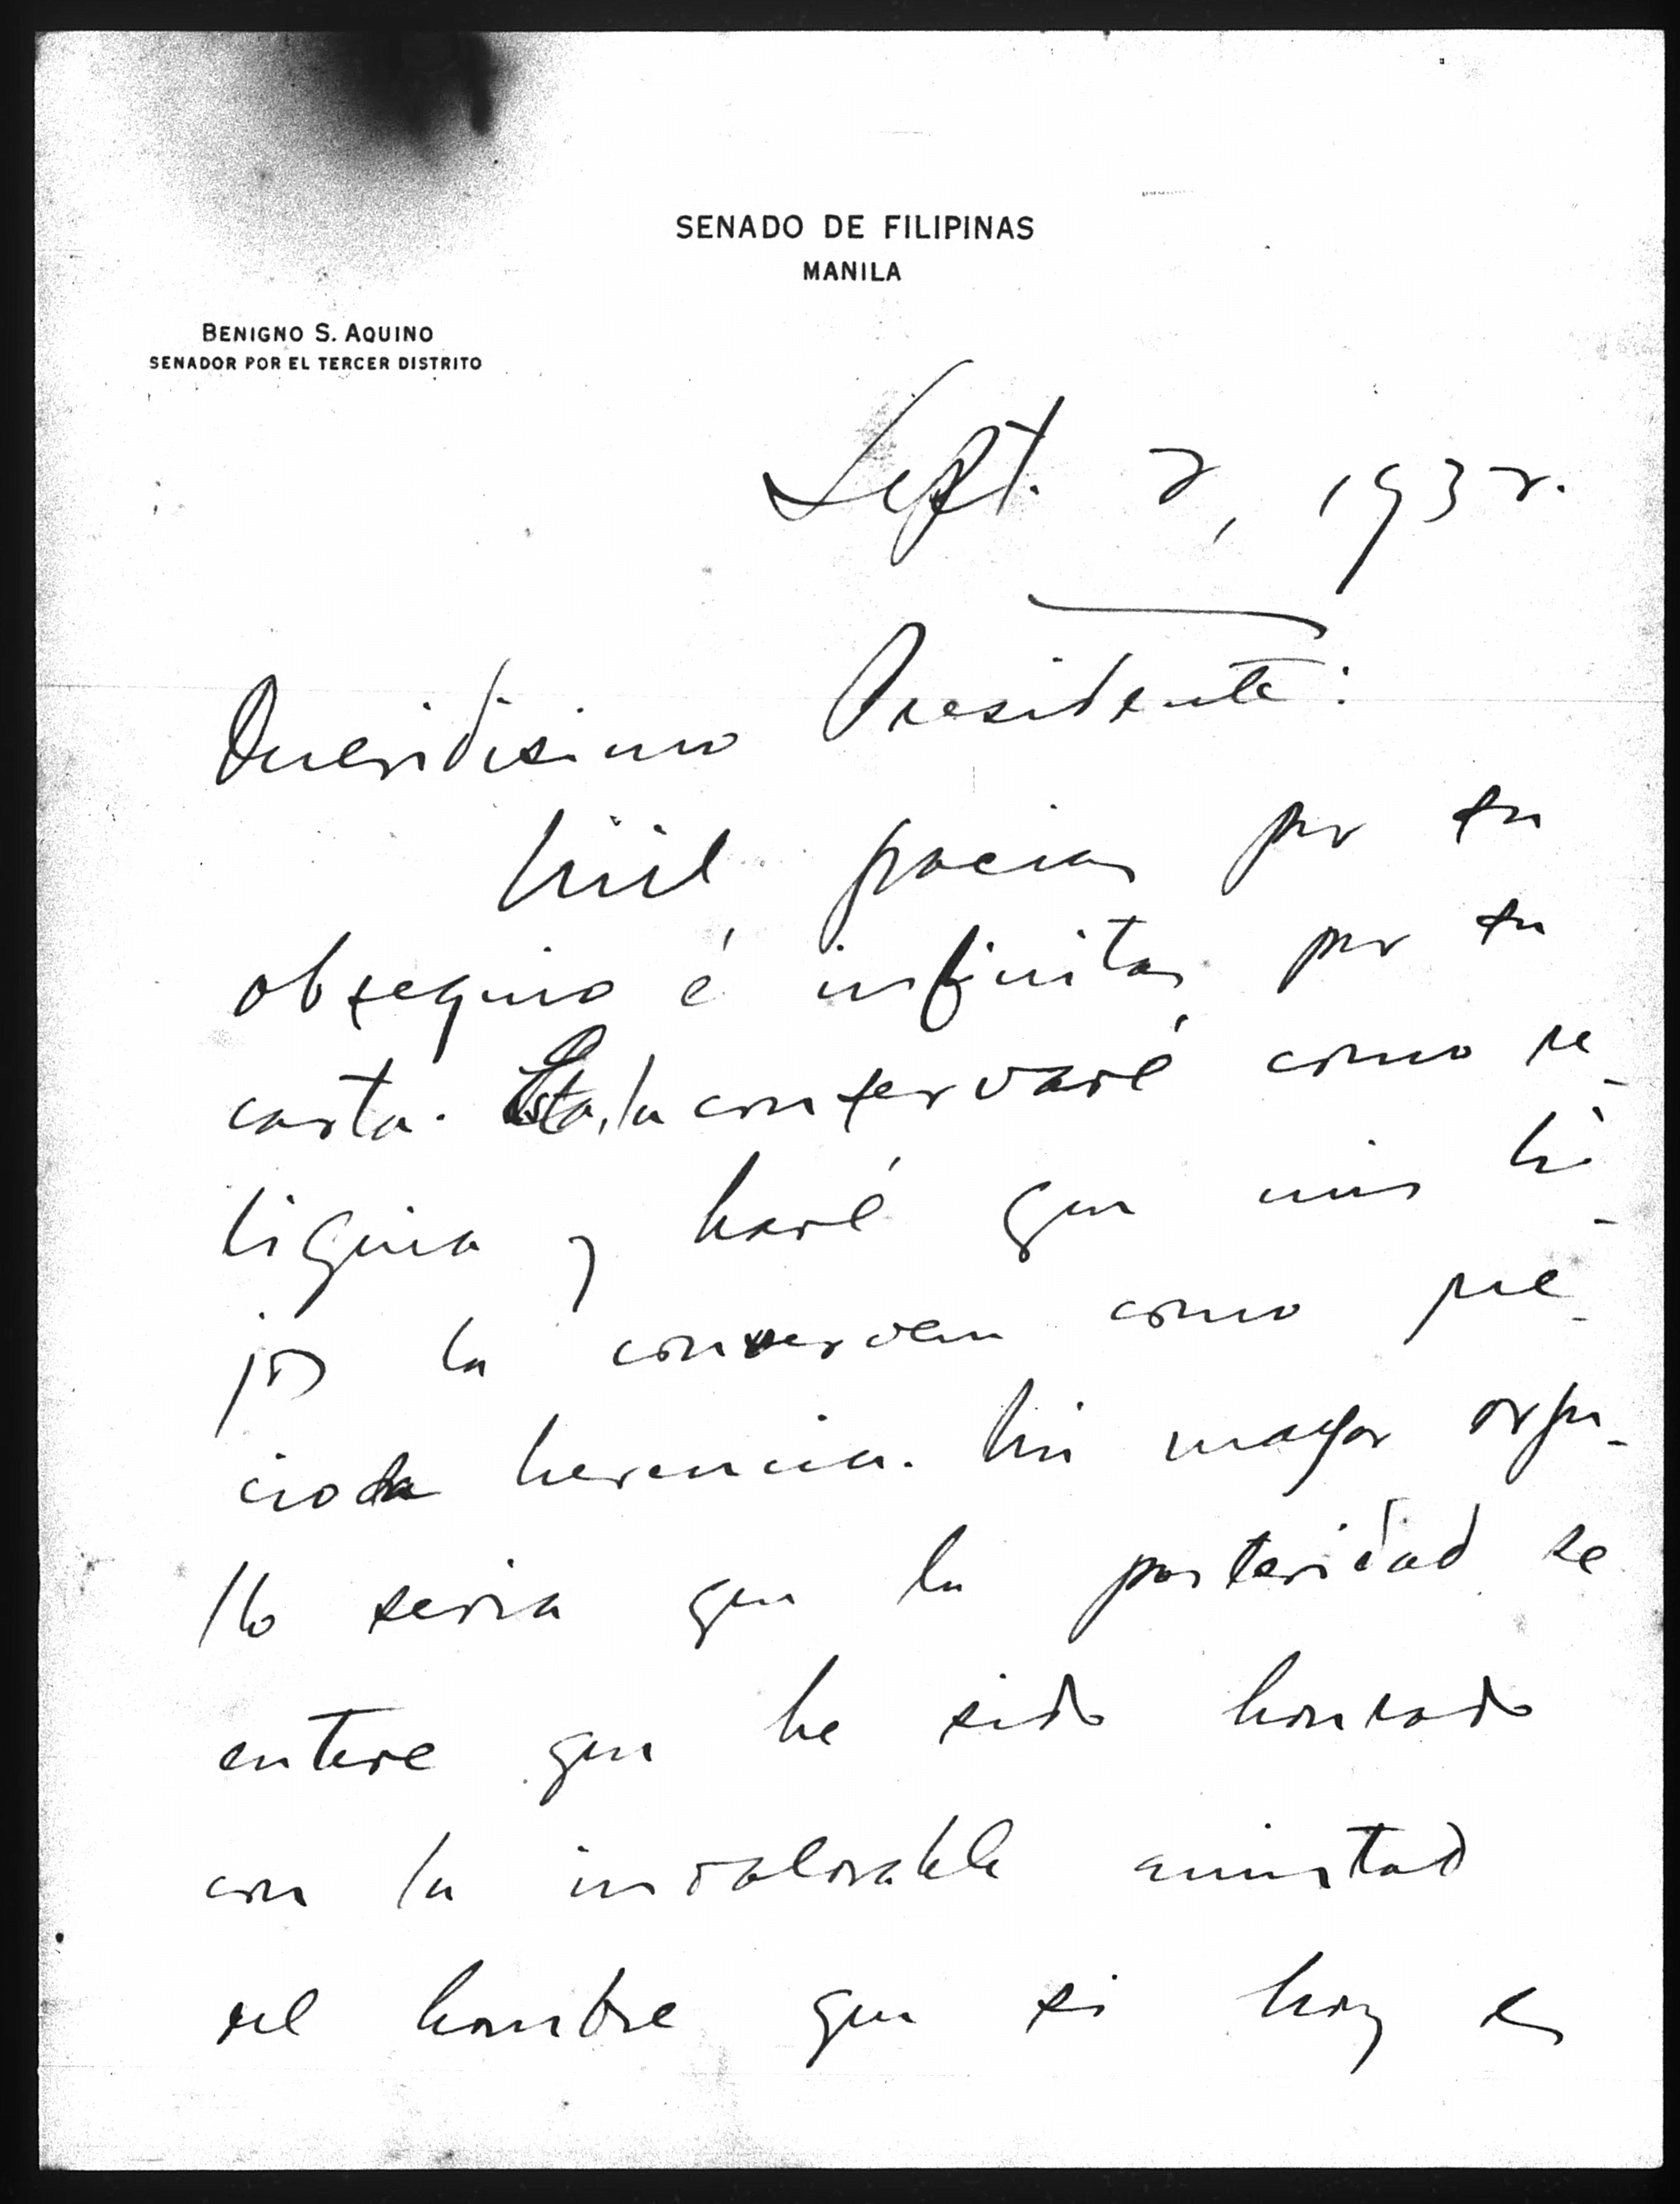 SENADO DE FILIPINAS
MANILA
BENIGNO S. AQUINO
SENADOR POR EL TERCER DISTRITO
Sept. 2, 1932.
Queridisimo Presidente:
Mil gracias por tu
obsequio é infinitas por tu
carta. Esta, la conservaré como re-
liquia y haré que mis hi-
jos la conserven como pre-
ciada herencia. Mi mayor orgu-
llo seria que la posteridad se
entere que he sido honrado
con la invalorable amistad
del hombre que si hoy es